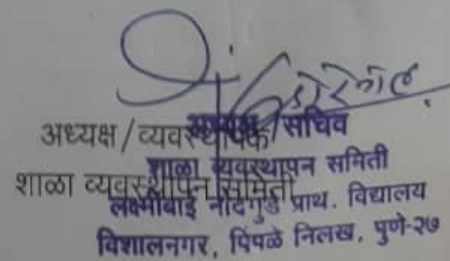 अध्यक्ष/व्यवस्थापक
शाळा व्यवस्थापन समिती
/सचिव
शाळा व्यवस्थापन समिती
लक्ष्मीबाई नांदगुडे प्राथ. विद्यालय
विशालनगर, पिंपळे निलख, पुणे-२७